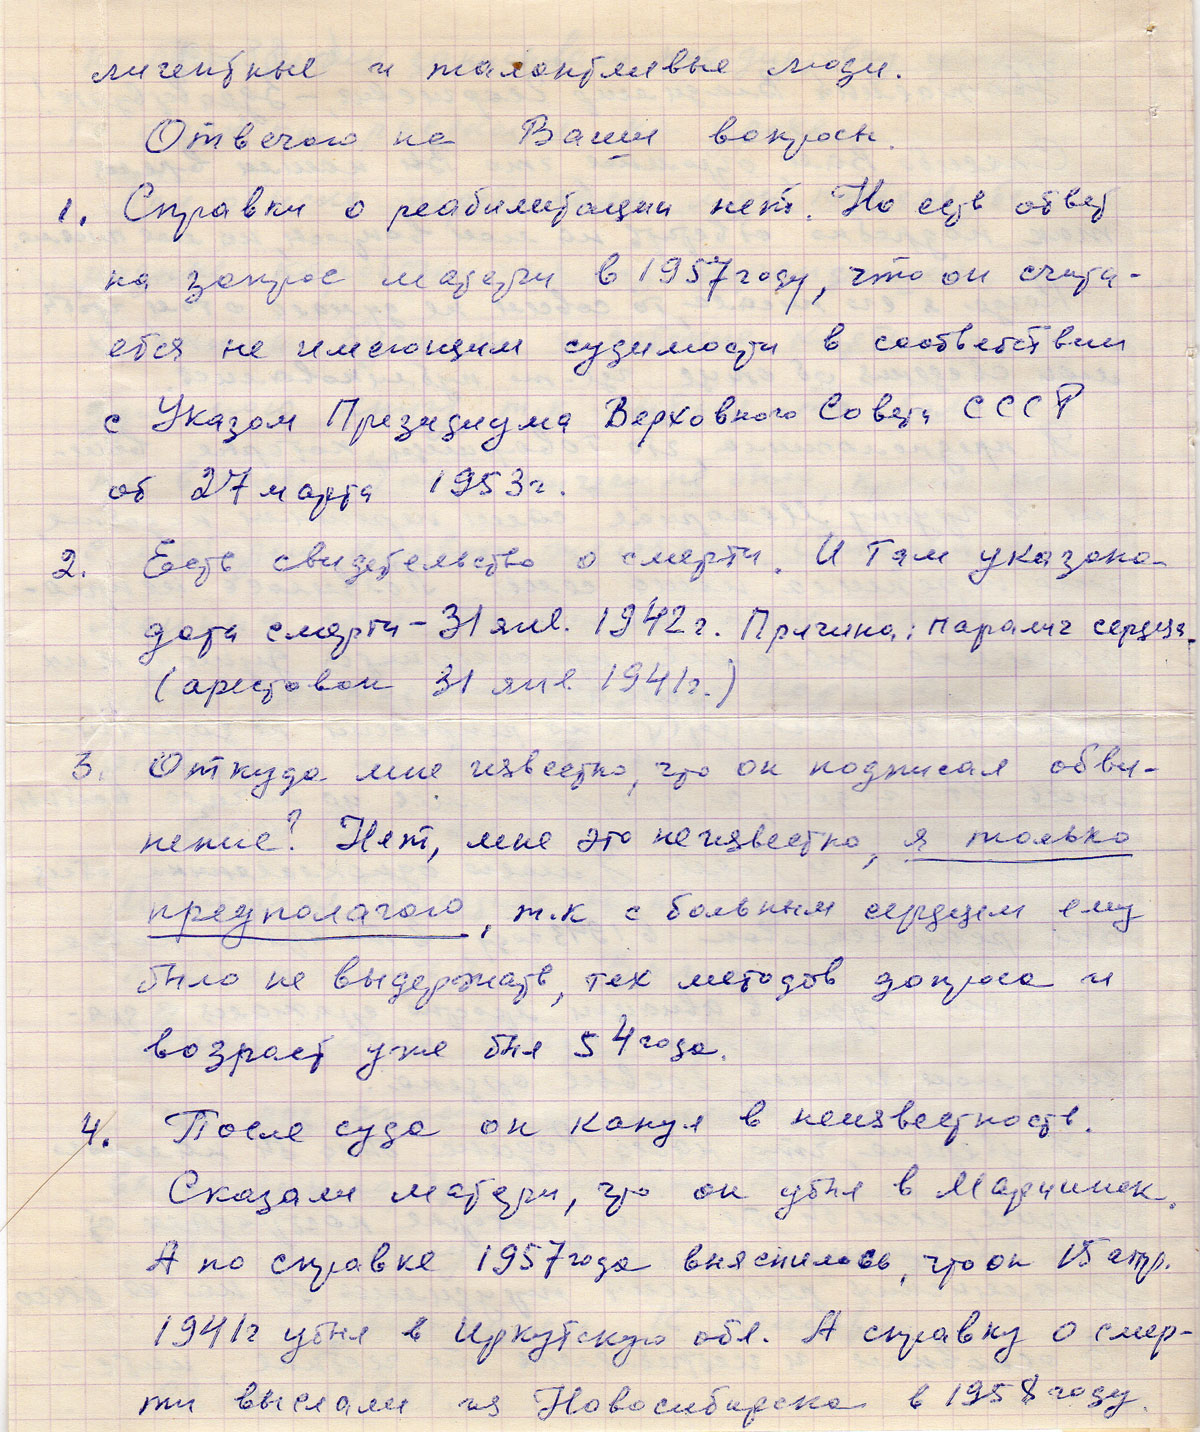 лигентные и талантливые люди.
Отвечаю на Ваши вопросы.
1. Справки о реабилитации нет. Но есть ответ
на запрос матери в 1957 году, что он счита-
ется не имеющим судимости в соответствии
с Указом Президиума Верховного Совета СССР
об 27 марта 1953 г.
2. Есть свидетельство о смерти. И там указана
дата смерти – 31 янв. 1942 г. Причина: паралич сердца.
(арестован 31 янв. 1941 г.)
3. Откуда мне известно, что он подписал обви-
нение? Нет, мне это неизвестно, я только
предполагаю, т.к с больным сердцем ему
было не выдержать, тех методов допроса и
возраст уже был 54 года.
4. После суда он канул в неизвестность.
Сказали матери, что он убыл в Мариинск.
А по справке 1957 года выяснилось, что он 15 апр.
1941 г убыл в Иркутскую обл. А справку о смер-
ти выслали из Новосибирска в 1958 году.